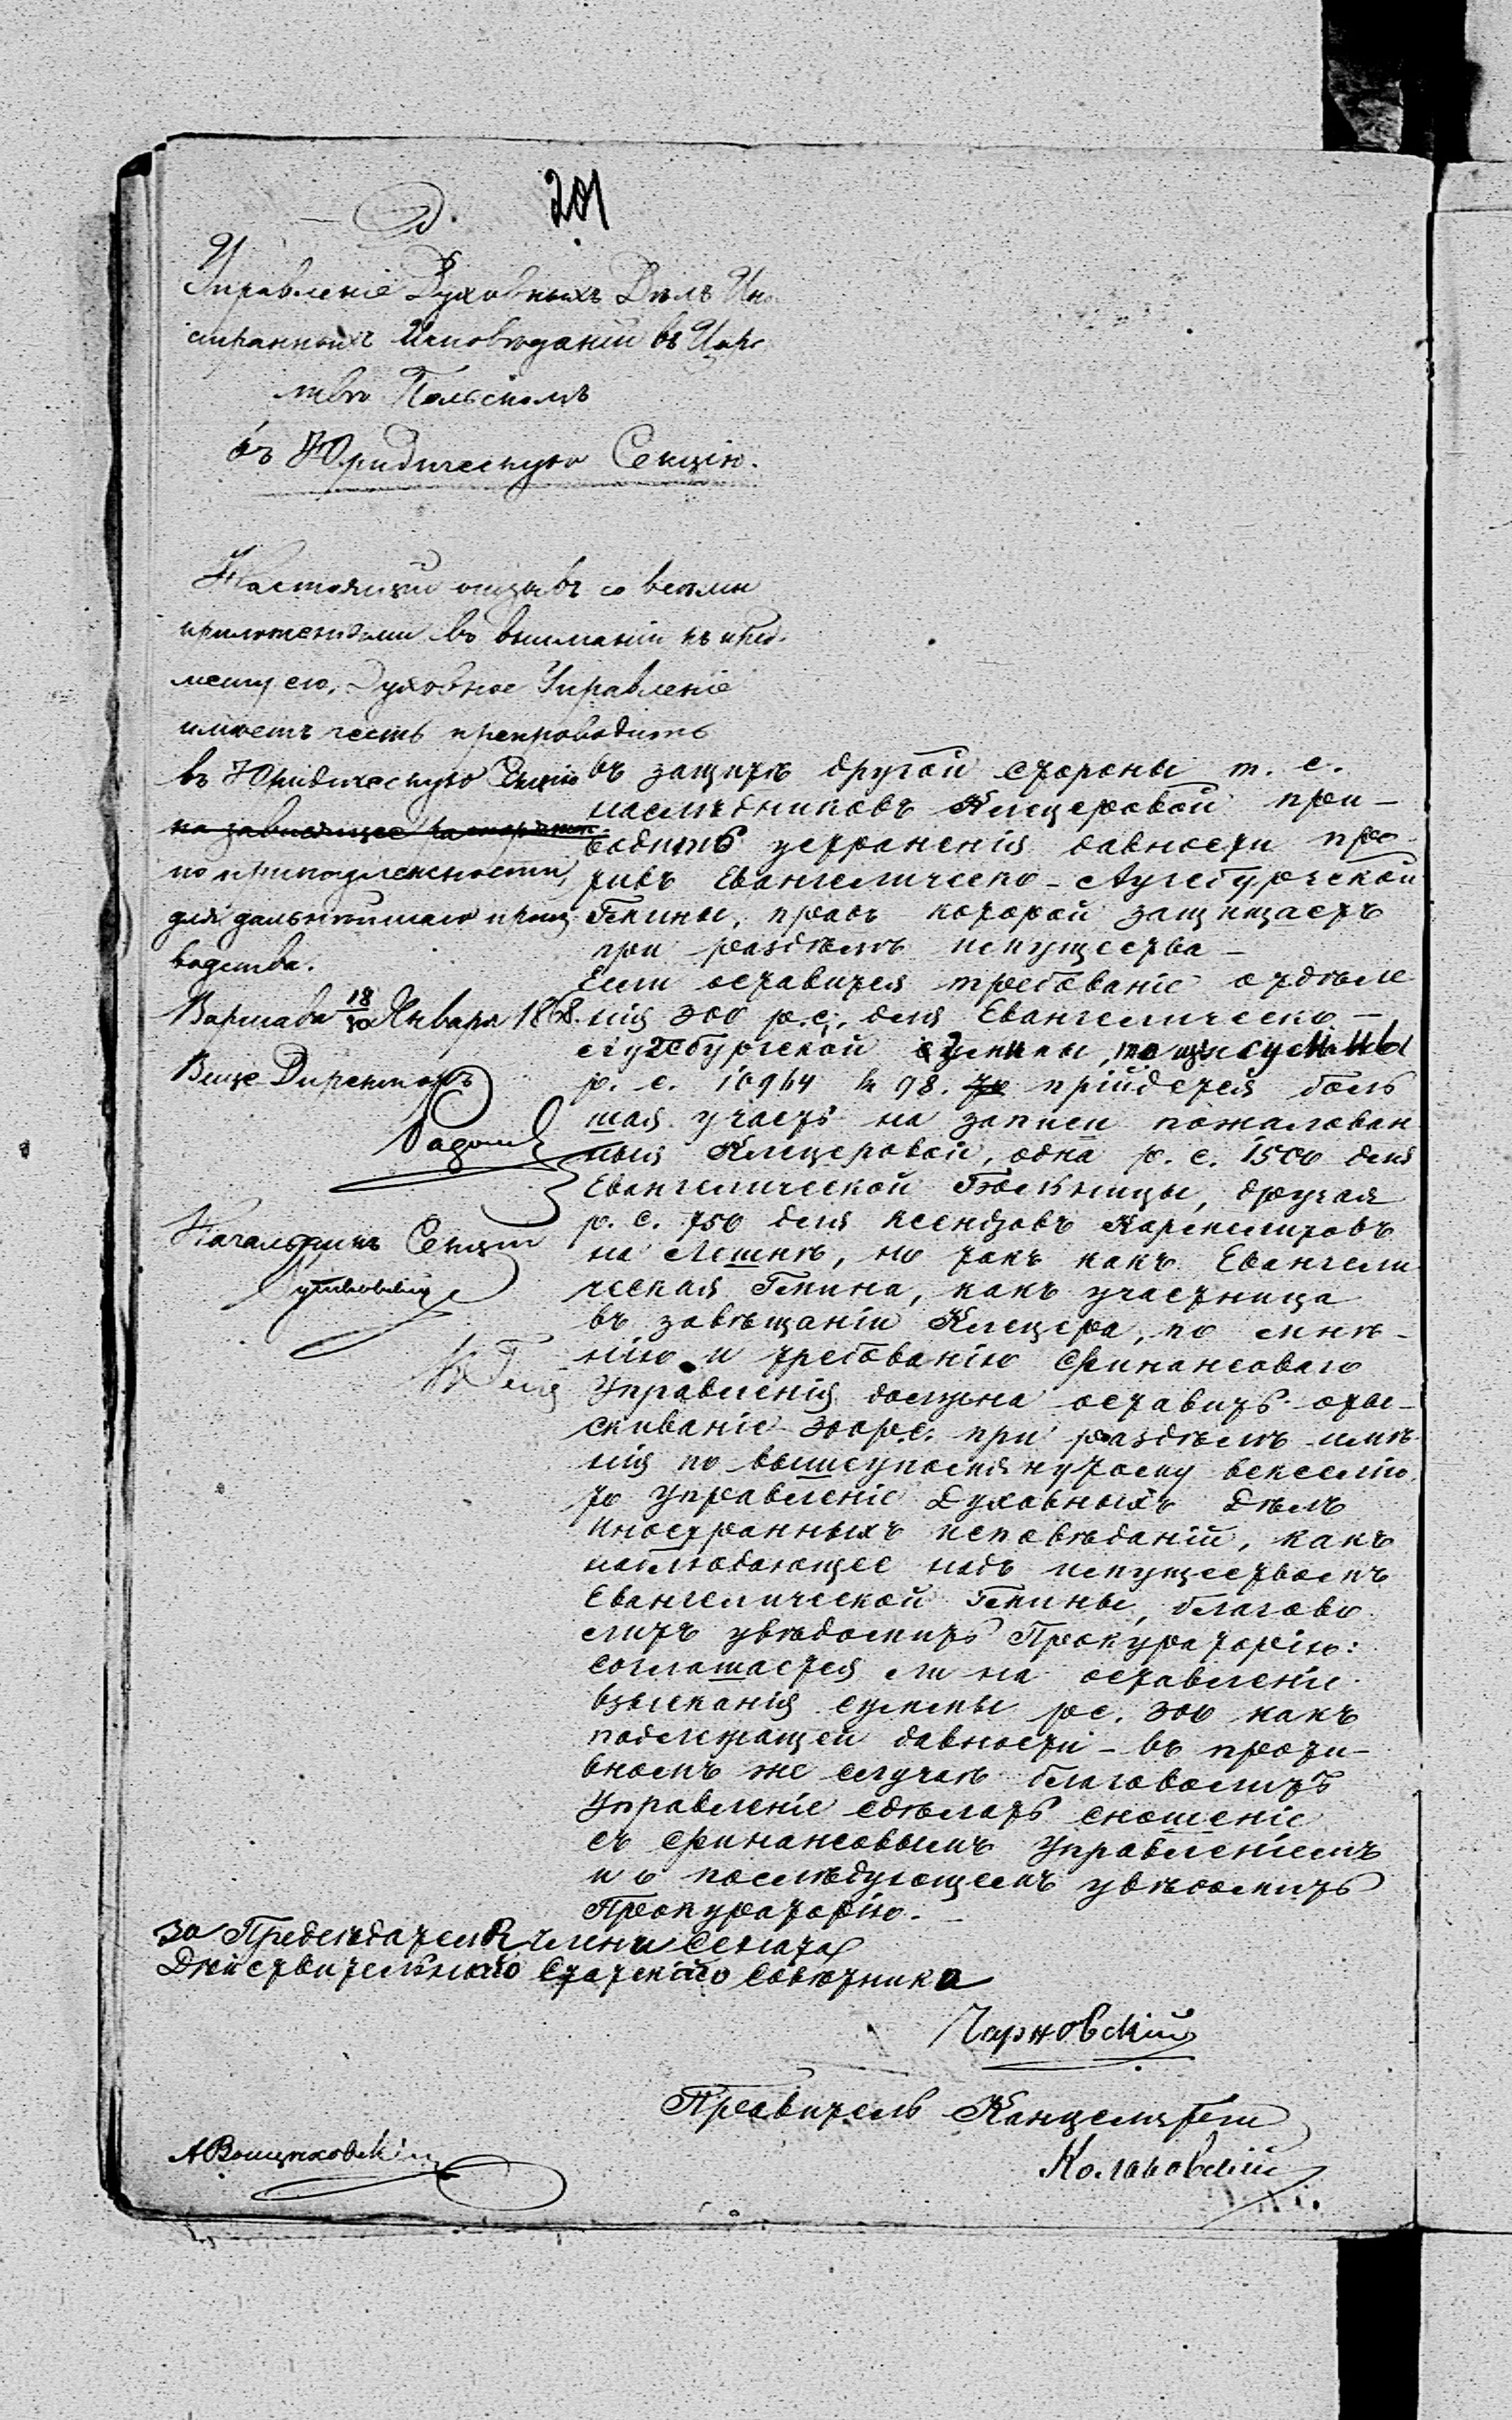 201
Д.
Управленіе Духовныхъ Дѣлъ Ино
странныхъ Исповѣданій въ Царс
твѣ Польскомъ
въ Юридическую Секцію.
Настоящій отзывъ со всѣми
приложеніями въ вниманіи къ пред-
мету его, Духовное Управленіе
имѣетъ честь препроводить
въ Юридическую Секцію
на зависящее распоряжен.
по принадлежности,
для дальнѣйшаго произ-
водства.
Варшава 18/30 Января 1868.
Вице Директоръ
Начальникъ Секціи
въ защитѣ другой стороны т. е.
наслѣдниковъ Клецеровой при-
водитъ устраненія давности про-
тивъ Евангелическо-Аугсбургской
Гмины, правъ которой защищаетъ
при раздѣлѣ имущества —
Если оставится требованіе отдѣле
нія 300 р.с. для Евангелическо-
Аугсбургской Гмины, то изъ суммы
р. с. 10964 к 98. то прійдется боль
шая участь на записи пожалован
ныя Клецеровой, одна р. с. 1500 для
Евангелической Больницы, другая
р. с. 750 для ксендзовъ Кармелитовъ
на Лешнѣ, но такъ какъ Евангели
ческая Гмина, какъ участница
въ завѣщаніи Клецера, по мнѣ-
нію и требованію Финансоваго
Управленія должна оставить оты-
скиваніе 300 р.с. при раздѣлѣ имѣ-
нія по вышеупомянутому векселю,
то Управленіе Духовныхъ Дѣлъ
Иностранныхъ исповѣданій, какъ
наблюдающее надъ имуществомъ
Евангелической Гмины, благово
литъ увѣдомить Прокураторію:
соглашается ли на оставленіе
взысканія суммы рс. 300 какъ
подлежащей давности — въ проти-
вномъ же случаѣ благоволитъ
Управленіе сдѣлать сношеніе
съ Финансовымъ Управленіемъ
и о послѣдующемъ увѣдомить
Прокураторію.
За Предсѣдателя Члена Сената
Дѣйствительнаго Статскаго Совѣтника
Чарновскій
Правитель Канцеляріи